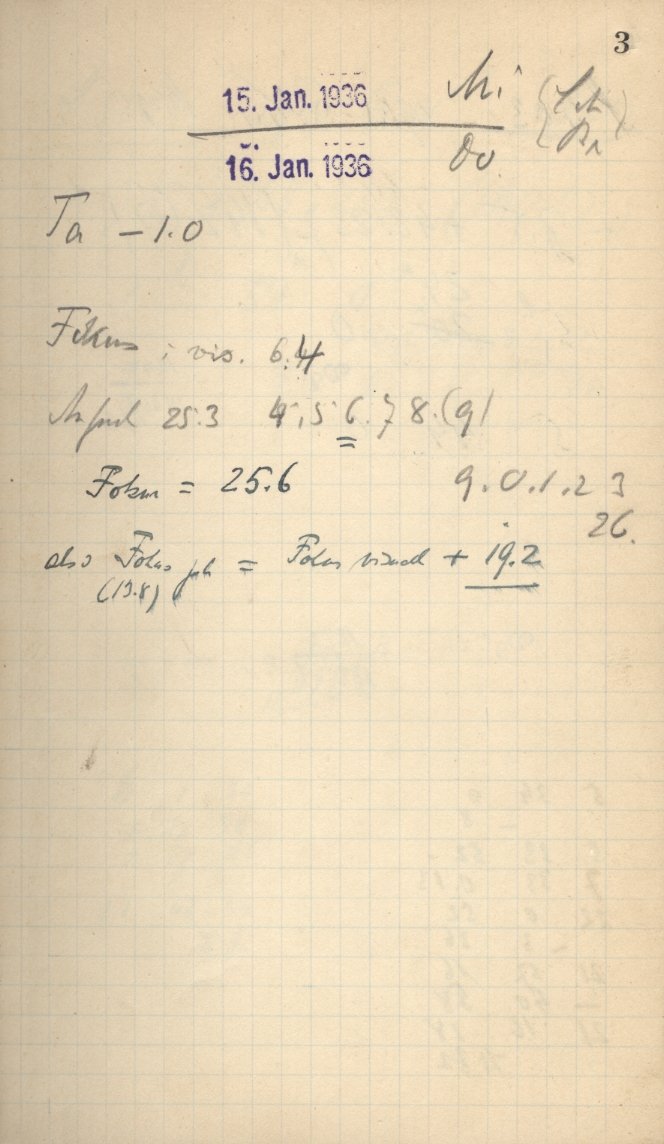 3
15. Jan. 1936 Mi
16. Jan. 1936 Do
Ta - 1.0
Fokus: vis. 6.4
25.3 4.5 6. 7 8. (9)
Fokus = 25.6 9. 0. 1. 2 3
26.
also Fokus ph = Fokus visuell + 19.2
(19.8)